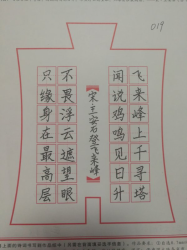 019
飞来峰上千寻塔
闻说鸡鸣见日升
【宋·王安石登飞来峰】
不畏浮云遮望眼
只缘身在最高层